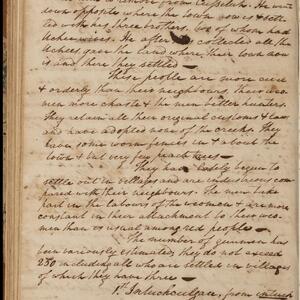 to remove from Cussetuh. He went
down opposite where the town now is and sett-
led with his three brothers. two of whom had
Uchee wives. He after collected all the
Uchees gave the land where their town now
is and there they settled
These people are more civil
& orderly than their neighbours. their wo-
men more chaste & the men better hunters.
They retain all their original customs & laws
and have adopted none of the creeks. They
have some worm fences in & about the
town & but very few peach trees
They have lately begun to
settle out in villages and are industrious com-
pared with their neighbours. The men take
part in the labours of the women & are more
constant in their attachment to their wo-
men than is usual among red people
The number of gunmen has
been variously estimated, they do not exceed
250 including all who are settled in villages
of which they have three
1st Intuchculgau, from intuch